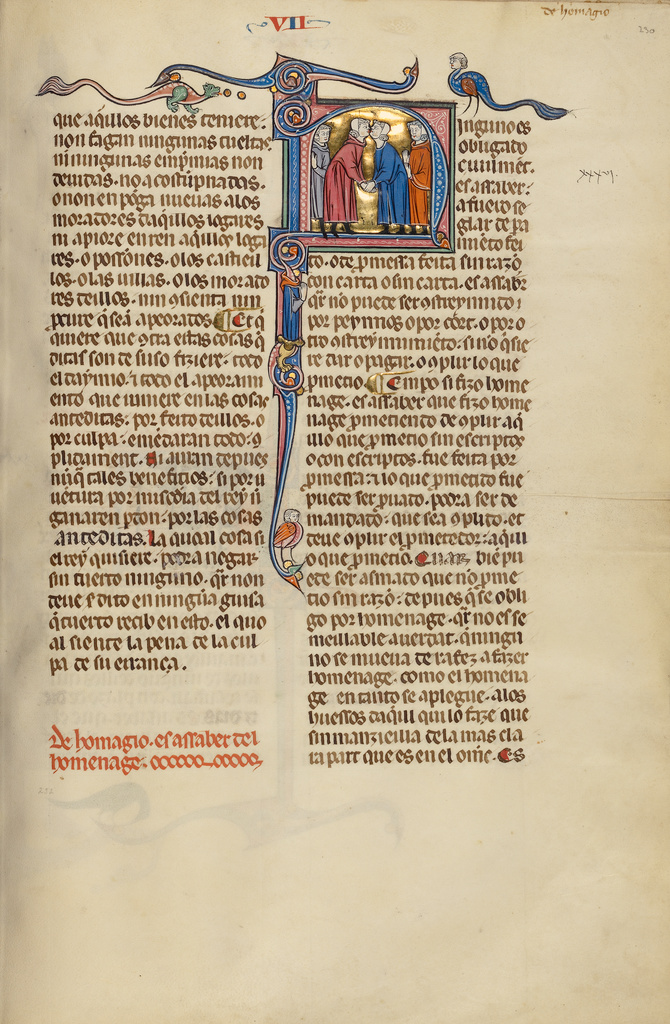 VII
de homagio
230
que aq̃llos bienes teniere.
non fagan ningunas cueltas
ni ningunas emp̃mias non
deuidas. no acostũpnadas.
o non en põga nueuas alos
moradores daq̃llos logares
ni apiore en ren aq̃llos loga
res. o possiões. o los castiell
los. o las uillas. o los morado
res dellos. nin 9sienta nin
que 9tra estas cosas q̃
ditas son de suso fiziere. todo
el daynno. ⁊ todo el apeorami
ento que uiniere en las cosas
anteditas. por feito dellos. o
por culpa. emẽdaran todo. 9
plidament. Ni auran depues
nũq̃ tales beneficios. si por
uẽtura por misedia del rey
ganaren pdon. por las cosas
anteditas. La qual cosa si
el rey quisiere. podra negar
sin tuerto ninguno. q̃r non
deue
q̃ tuerto recib en esto. el quo
al siente la pena de la cul
pa de su errança.
De homagio. es assaber del
homenage.
Ninguno es
obligado
ciuilmẽt.
es assaber.
a fuero se
glar de pa
gamiẽto fei
to. o de pmessa feita sin razõ
con carta o sin carta. es assabr
q̃r no puede ser 9streynnido
por peynnos o por cort. o por o
tro 9streynnimiẽto. si no q̃sie
re dar o pagar. o 9plir lo que
pmetio. Empo si fizo home
nage. es assaber que fizo home
nage pmetiendo de 9plir aq̃
llo que pmetio sin escriptos
o con escriptos. fue feita por
pmessa. ⁊ lo que pmetido fue
puede ser puado. podra ser de
mandado. que sea 9plido. et
deue 9plir el pmetedor. aqui
o que pmetio. Quar biẽ pu
ede ser asmado que no pme
tio sin razõ. depues q̃ se obli
go por homenage. q̃r no es se
meillable a uerdat. q̃ ningu
no se mueua de rafez a fazer
homenage. como el homena
ge en tanto se aplegue. alos
huessos daqui qui lo faze que
sin manzieilla dela mas cla
ra part que es en el omẽ. Es
xxxvj.